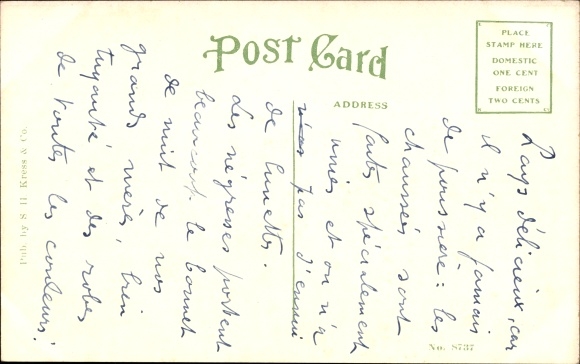 POST CARD
PLACE
STAMP HERE
DOMESTIC
ONE CENT
FOREIGN
TWO CENTS
ADDRESS
Pub. by S. H. Kress & Co.
No. 8737
Pays délicieux, car
il n'y a jamais
de poussière : les
chaussées sont
faites spécialement
unies et on n'a
pas d'ennui
de lunettes.
Les négresses portent
beaucoup le bonnet
de nuit de nos
grands mères, bien
tuyauté et des robes
de toutes les couleurs.